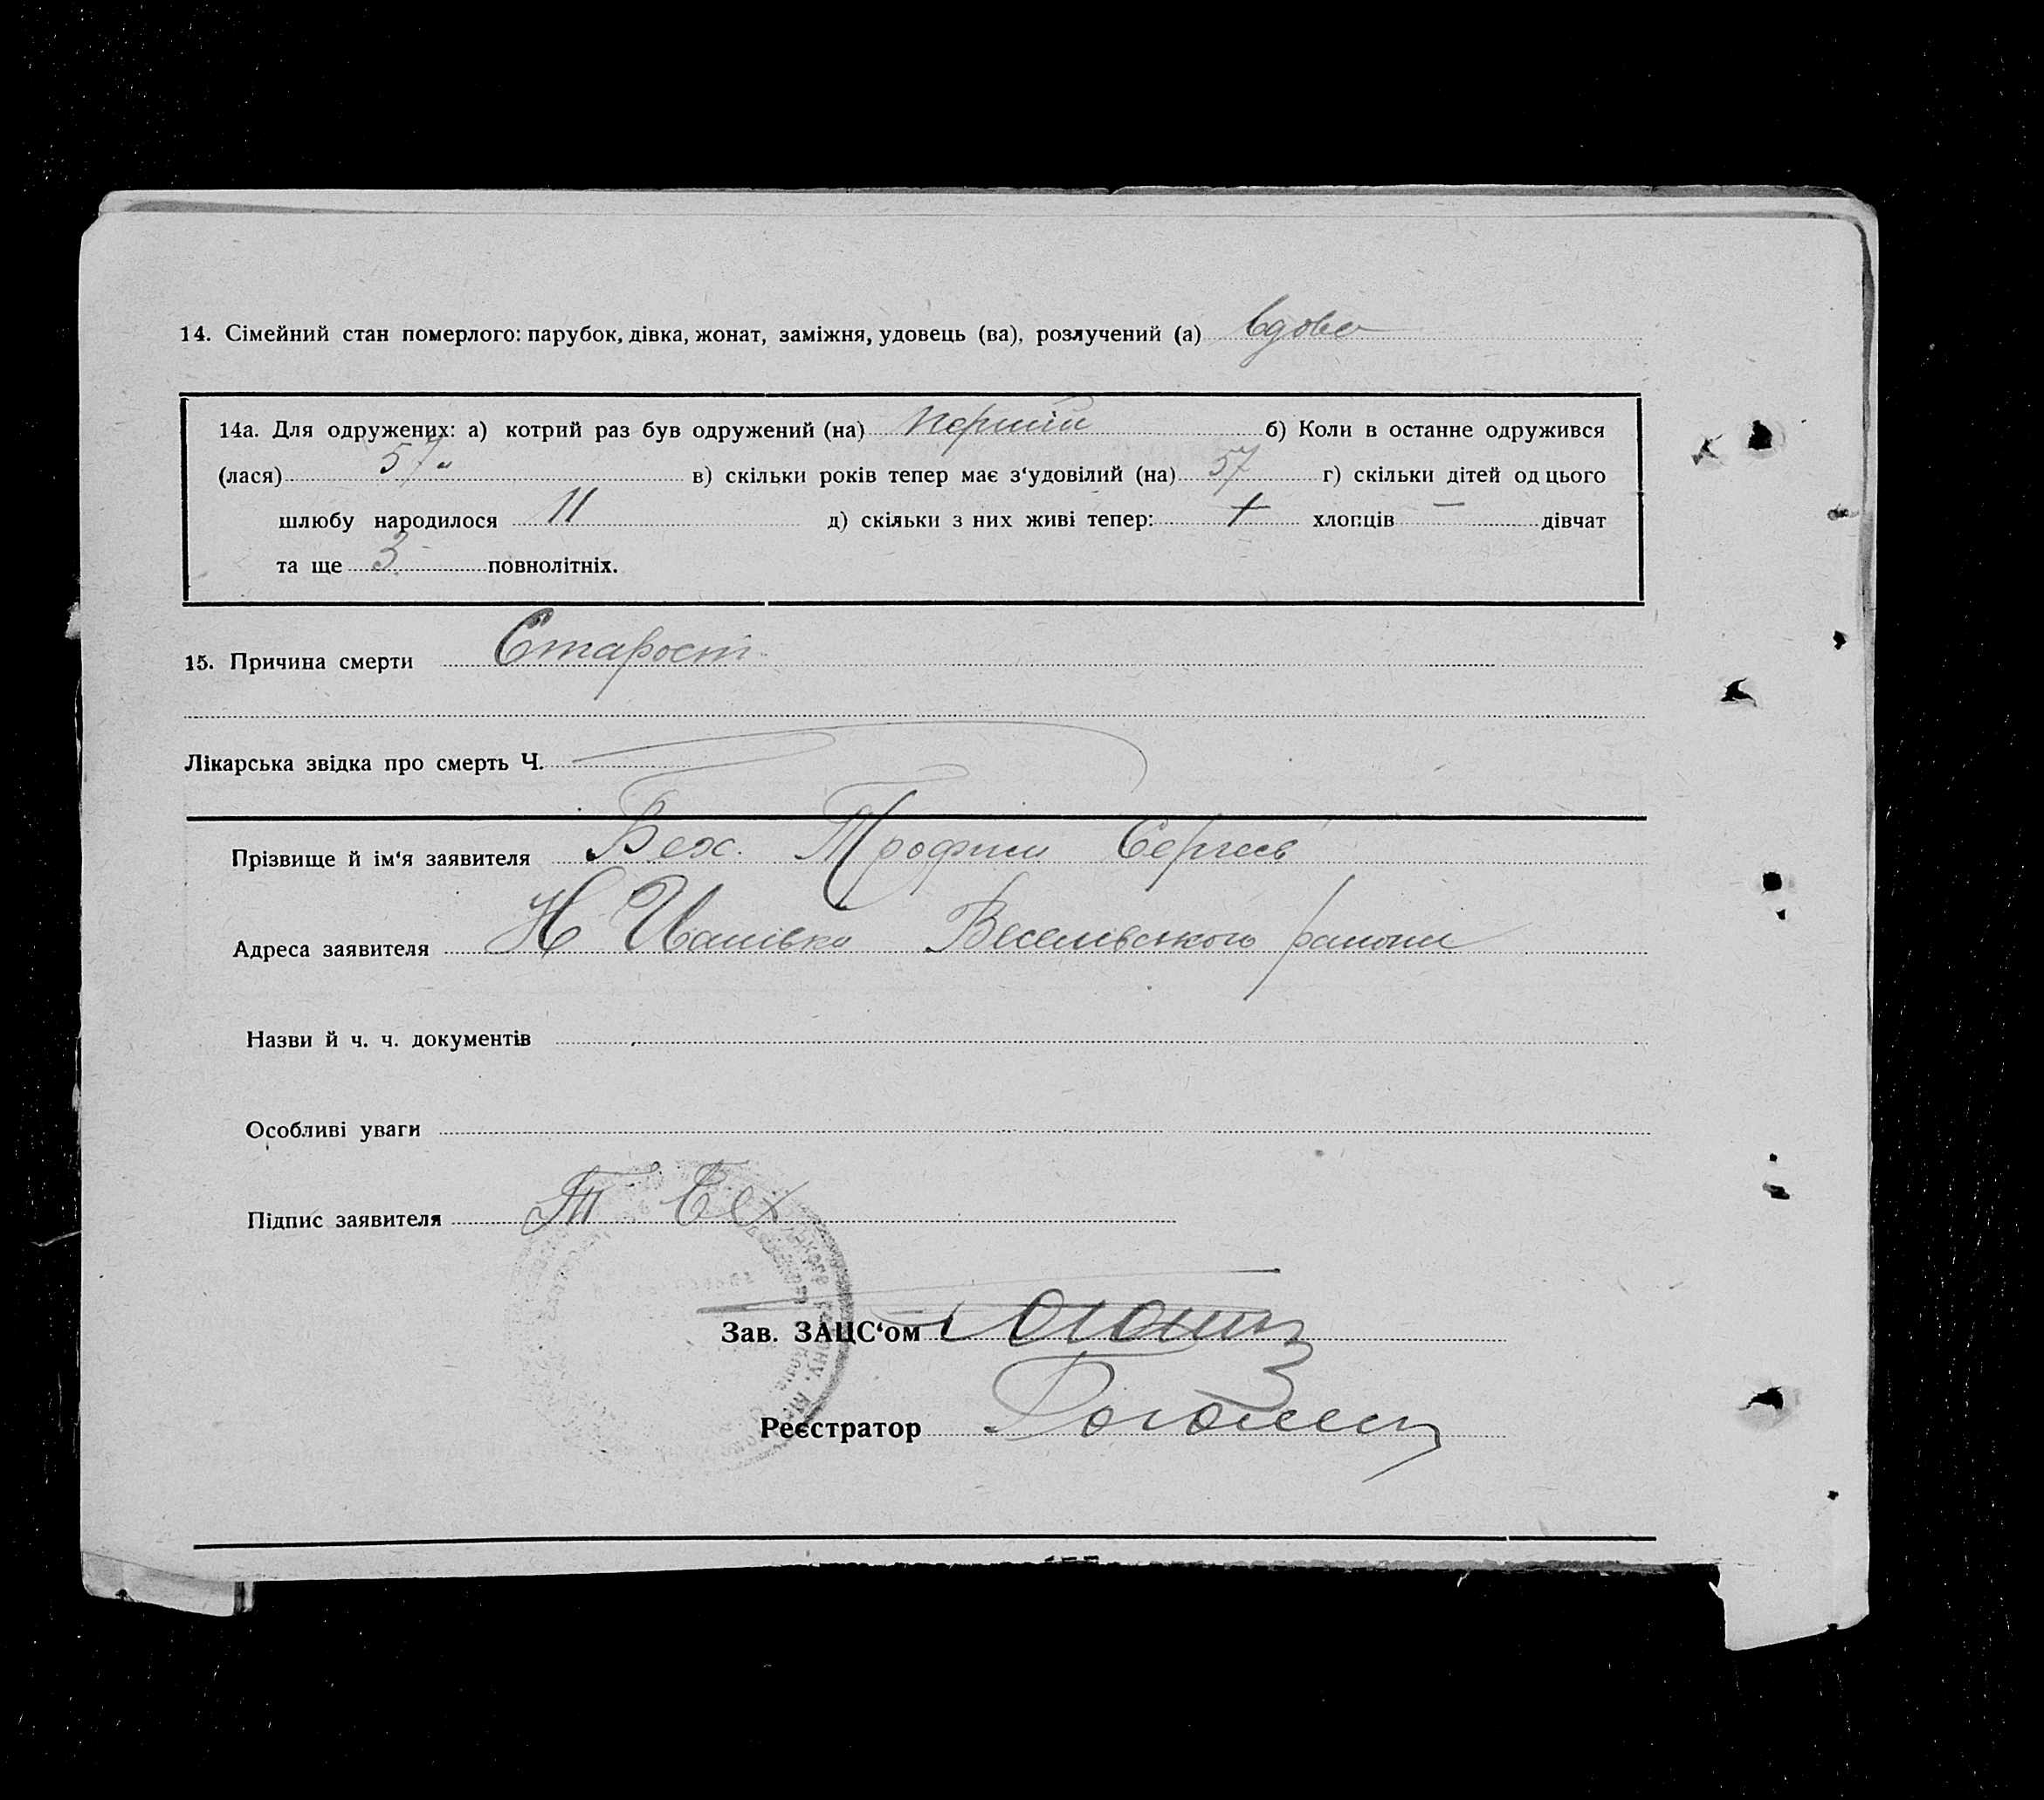 14. Сімейний стан померлого: парубок, дівка, жонат, заміжня, удовець (ва), розлучений (а) вдова
14а. Для одружених: а) котрий раз був одружений (на) перший б) Коли в останне одружився
(лася) 57 в) скільки років тепер має з‘удовілий (на) 57 г) скільки дітей од цього
шлюбу народилося 11 д) скільки з них живі тепер: хлопців — дівчат
та ще 3 повнолітніх.
15. Причина смерти Старост
Лікарська звідка про смерть Ч.
Прізвище й ім‘я заявителя Бех. Трофим Сергеев
Адреса заявителя Н Иванівка Веселівського району
Назви й ч. ч. документів
Особливі уваги
Підпис заявителя Т Бех
Зав. ЗАЦС‘ом
Реєстратор